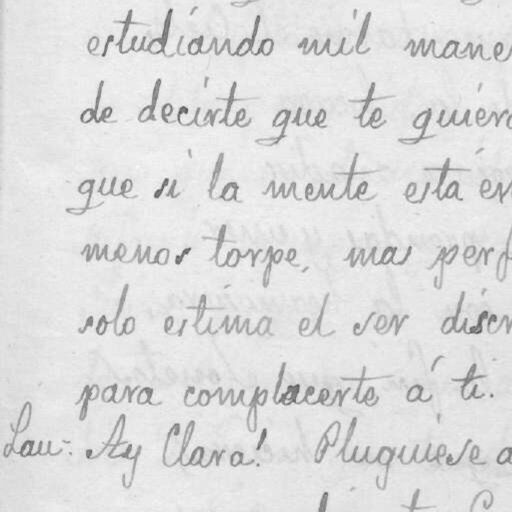 estudiando mil mane
de decirte que te quiero
que si la mente está en
menos torpe, mas perf
solo estima el ser discr
para complacerte á ti.
Lau-: Ay Clara! Pluguiese a